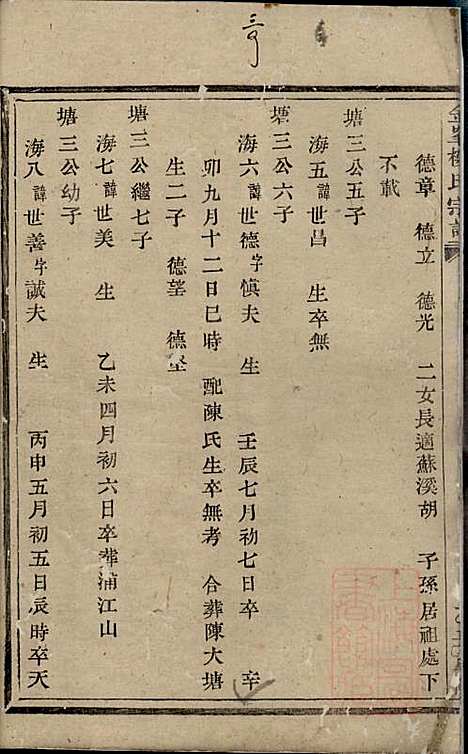 德章　德立　德光　二女長適蘇溪胡　子孫居祖處下
不載
塘三公五子
海五諱世昌　生卒無
塘三公六子
海六諱世德字慎夫　生　壬辰七月初七日卒　辛
卯九月十二日巳時　配陳氏生卒無考　合葬陳大塘
生二子　德望　德堅
塘三公繼七子
海七諱世美　生　乙未四月初六日卒葬浦江山
塘三公幼子
海八諱世善字誠夫　生　丙申五月初五日辰時卒天